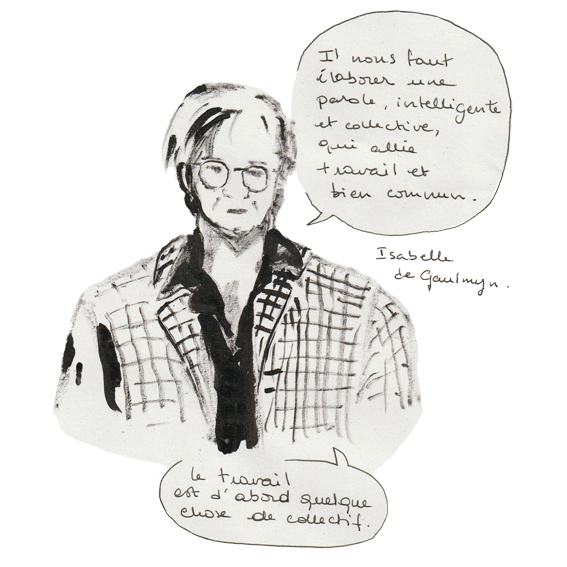 Il nous faut
élaborer une
parole, intelligente
et collective,
qui allie
travail et
bien commun.
Isabelle
de Gaulmyn.
le travail
est d'abord quelque
chose de collectif.